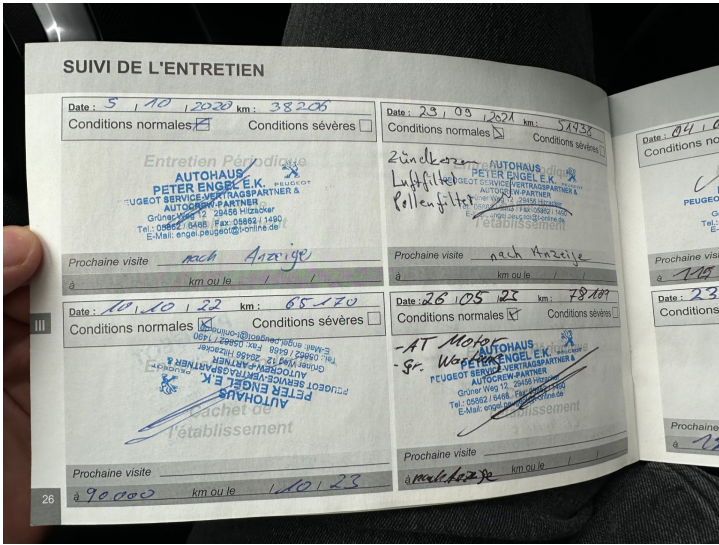 SUIVI DE L'ENTRETIEN
Date : 5 / 10 / 2020 km : 38206
Conditions normales Conditions sévères
Entretien Périodique
AUTOHAUS
PETER ENGEL E.K.
PEUGEOT
PEUGEOT SERVICE-VERTRAGSPARTNER &
AUTOCREW-PARTNER
Grüner Weg 12 29456 Hitzacker
Tel.: 05862 / 6468 Fax: 05862 / 1490
E-Mail: engel.peugeot@t-online.de
Prochaine visite nach Anzeige
à km ou le / /
Date : 29 / 09 / 2021 km : 51438
Conditions normales Conditions sévères
Zündkerzen
Luftfilter
Pollenfilter
AUTOHAUS
PETER ENGEL E.K.
PEUGEOT
PEUGEOT SERVICE-VERTRAGSPARTNER &
AUTOCREW-PARTNER
Grüner Weg 12 29456 Hitzacker
Tel.: 05862 / 6468 Fax: 05862 / 1490
E-Mail: engel.peugeot@t-online.de
l'établissement
Prochaine visite nach Anzeige
à km ou le / /
III
Date : 10 / 10 / 22 km : 65170
Conditions normales Conditions sévères
AUTOHAUS
PETER ENGEL E.K.
PEUGEOT
PEUGEOT SERVICE-VERTRAGSPARTNER &
AUTOCREW-PARTNER
Grüner Weg 12 29456 Hitzacker
Tel.: 05862 / 6468 Fax: 05862 / 1490
E-Mail: engel.peugeot@t-online.de
Cachet de
l'établissement
Prochaine visite
à 90000 km ou le 1 / 10 / 23
Date : 26 / 05 / 23 km :
Conditions normales Conditions sévères
- AT Motor
- gr. Wartung
AUTOHAUS
PETER ENGEL E.K.
PEUGEOT
PEUGEOT SERVICE-VERTRAGSPARTNER &
AUTOCREW-PARTNER
Grüner Weg 12 29456 Hitzacker
Tel.: 05862 / 6468 Fax: 05862 / 1490
E-Mail: engel.peugeot@t-online.de
l'établissement
Prochaine visite
à nach Anzeige km ou le / /
26
Date : 04
Conditions no
PEUGEO
Prochaine vis
à
Date : 23
Conditions
Prochaine
à